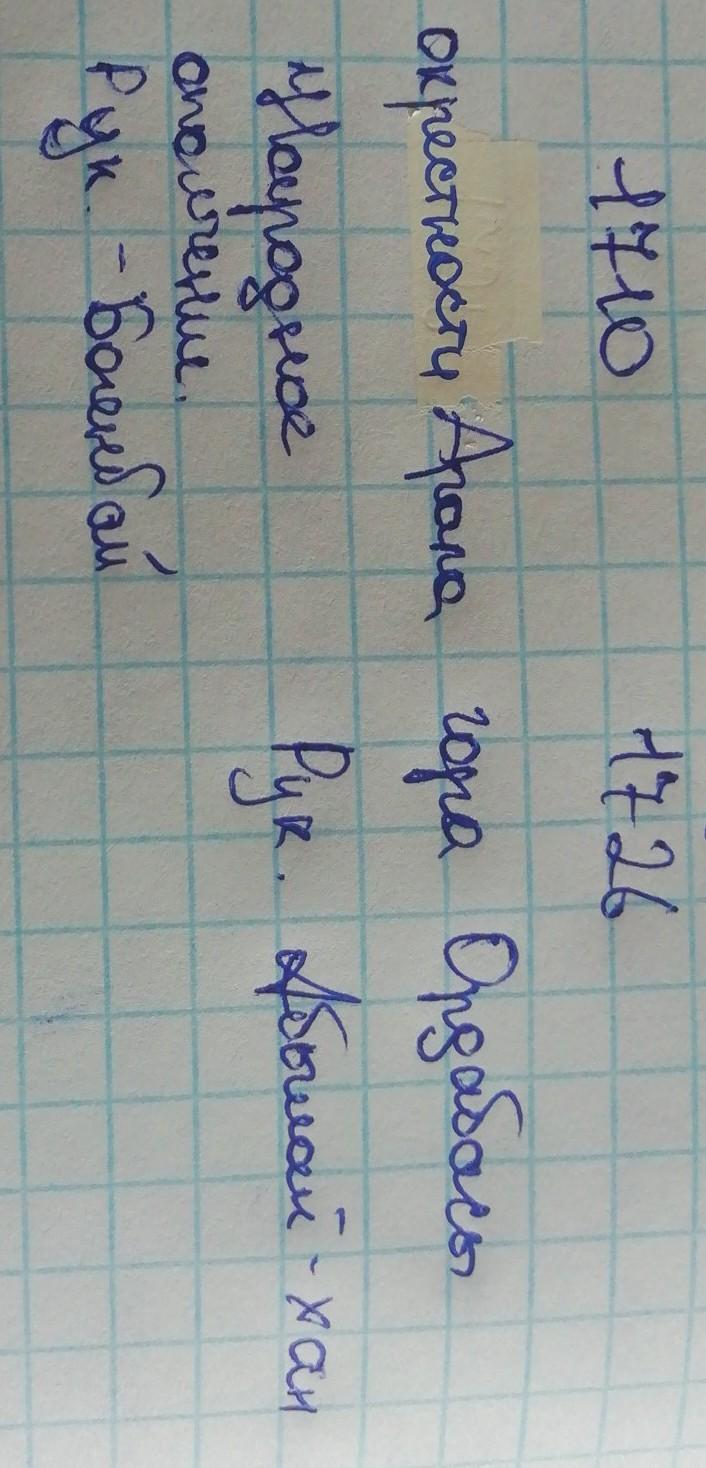 1710
1726
окрестности Арала
гора Ордабасы
Народное
ополчение.
Рук. - Богенбай
Рук. Абылай-хан